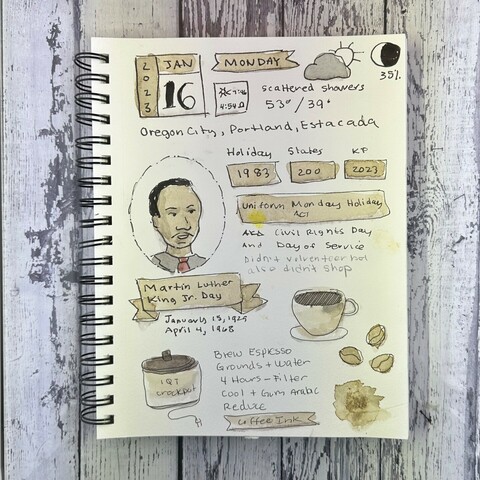 2023
JAN
16
MONDAY
4:54
35%
Scattered showers
53° / 39°
Oregon City, Portland, Estacada
Holiday States KF
1983 200 2023
Uniform Monday Holiday
Act
AKA Civil Rights Day
And Day of Service
Didn't volunteer but
also didn't shop
Martin Luther
King Jr. Day
January 15, 1929
April 4, 1968
Brew Espresso
Grounds + Water
4 Hours - Filter
Cool + Gum Arabic
Reduce
Coffee Ink
1 QT
crockpot